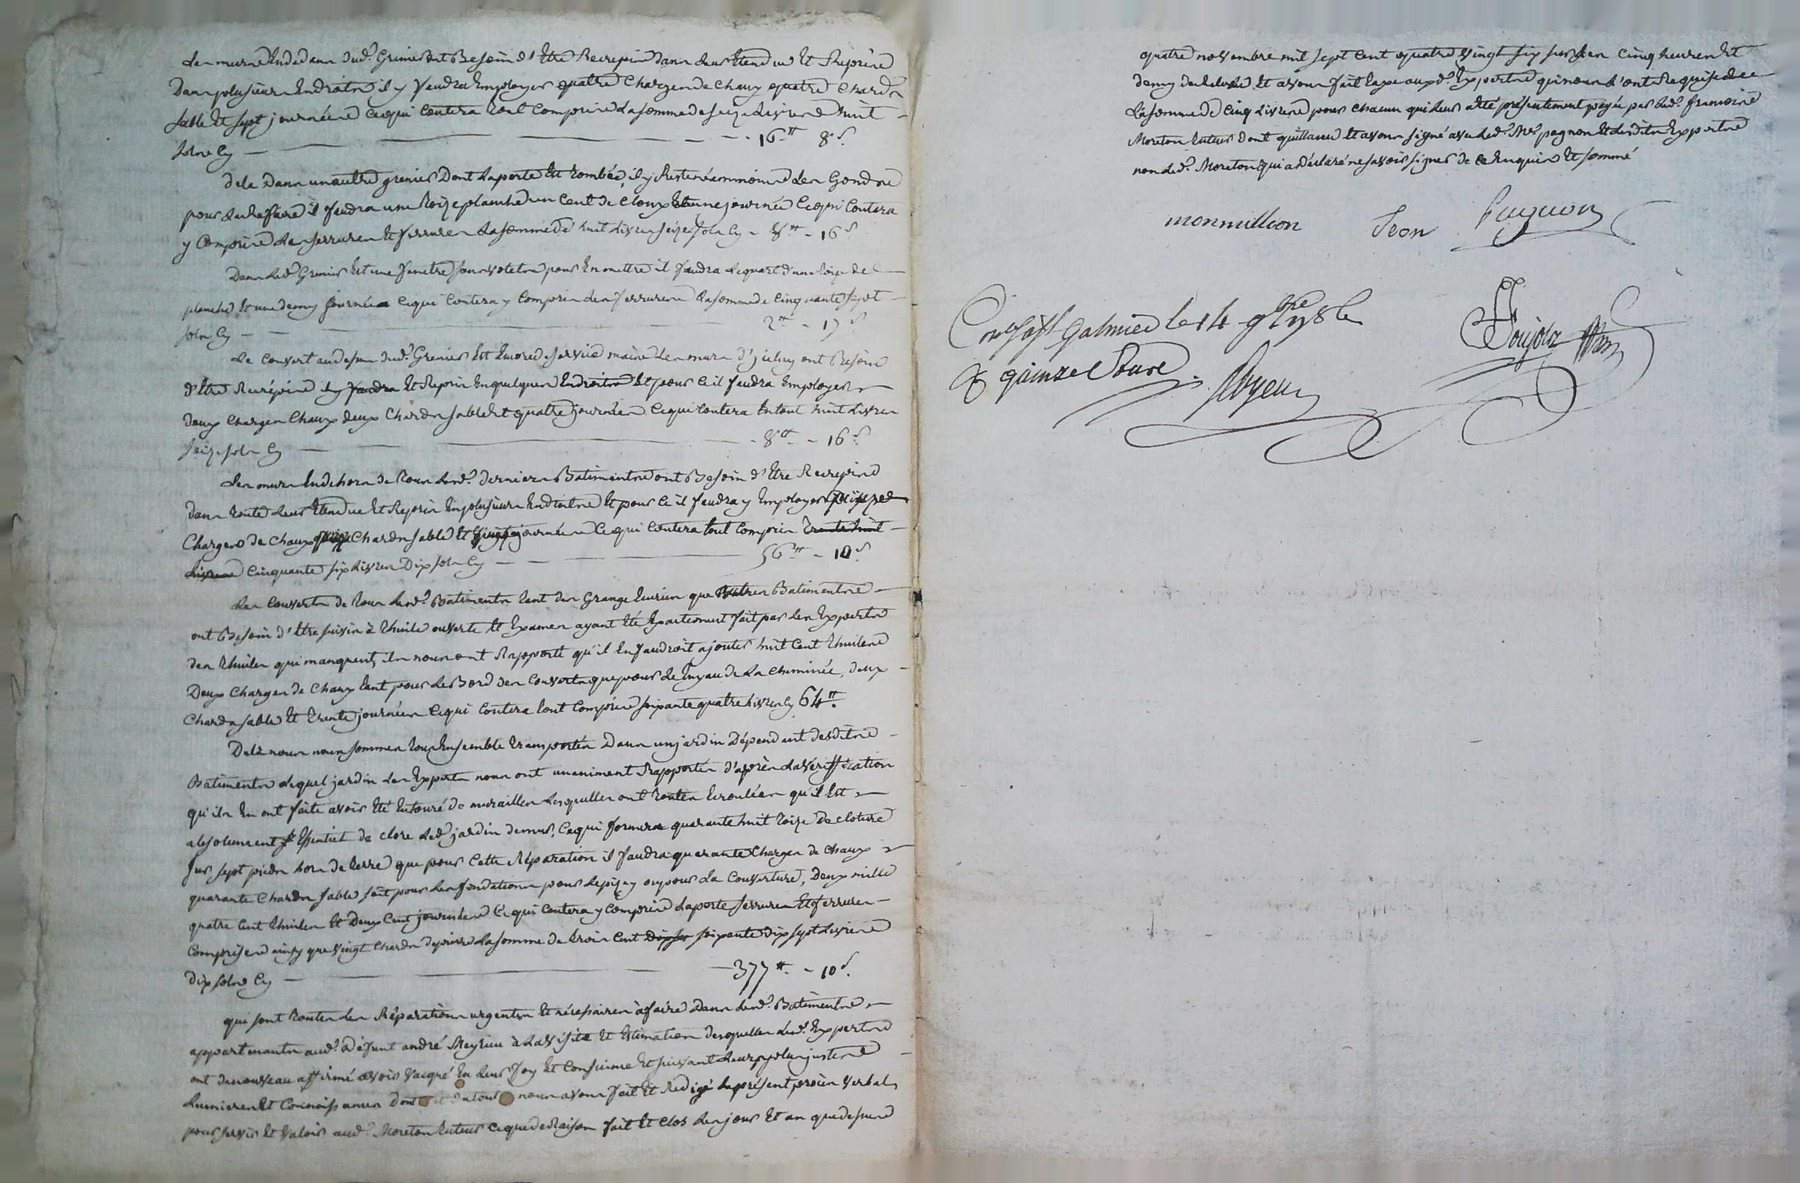 Les murs en dedans dud. Grenier ont Besoin d'Etre Recrepis dans Leur Etendue Et Repris
Dans plusieurs Endroits il y faudra Employer quatre Charges de Chaux quatre Chards
sable Et sept journées Ce qui Coutera tout Compris La somme de seize Livres huit
sols Cy 16tt 8s.
de la Dans un autre grenier Dont La porte Est tombée, il y Reste néanmoins Les Gonds
pour La Refaire il faudra une toise planches un Cent de Cloux Et une journée Ce qui Coutera
y Compris Les serrures Et ferrures La somme de huit Livres seize sols Cy 8tt - 16s
Dans Led. Grenier Est une fenetre sans volets pour En mettre il faudra Le quart d'une toise de
planches Et une demy journée Ce qui Coutera y Compris Les ferrures La somme de Cinquante sept
sols Cy 2tt - 17s
Le Couvert au dessus dud. Grenier Est Encore de service mais Les murs d'iceluy ont Besoin
d'Etre Recrépis Et Repris En quelques Endroits Et pour Ce il faudra Employer
deux Charges Chaux deux Chards sable Et quatre journées Ce qui Coutera En tout huit Livres
seize sols Cy 8tt - 16s
Les murs En dehors de tous Lesd. derniers Batiments ont Besoin d'Etre Recrepis
dans toute Leur Etendue Et Repris En plusieurs Endroits Et pour Ce il faudra y Employer
Charges de Chaux Chards sable Et journées Ce qui Coutera tout Compris trente huit
Livres Cinquante six Livres Dix sols Cy 56tt - 10s
Les Couverts de tous Lesd. Batiments tant des Grange Ecuries que autres Batiments
ont Besoin d'Etre suivis à thuile ouverte Et Examen ayant Eté Exactement fait par Les Experts
des thuiles qui manquent, ils nous ont Rapporté qu'il En faudroit ajouter huit Cent thuiles
Deux Charges de Chaux tant pour Le Bord des Couverts que pour Le tuyau de La Cheminée, deux
Chards sable Et trente journées Ce qui Coutera tout Compris soixante quatre Livres Cy 64tt.
De là nous nous sommes tous Ensemble transportés Dans un jardin Dépendant desdits
Batiments Lequel jardin Les Experts nous ont unanimement Rapporté d'après La vérification
qu'ils En ont faite avoir Eté Entouré de murailles Lesquelles ont toutes Ecroulées qu'il Est
absolument Essentiel de clore Led. jardin de murs, Ce qui formera quarante huit toize De cloture
sur sept pieds hors de terre que pour Cette Réparation il faudra quarante Charges de Chaux
quarante Chards sable soit pour Les fondations pour Le pizay ou pour La Couverture, Deux mille
quatre Cent thuiles Et Deux Cent journées Ce qui Coutera y Compris La porte serrures Et ferrures
Comprises ainsy que vingt Chards de pierre La somme de trois Cent soixante dix sept Livres
dix sols Cy 377tt - 10s.
qui sont toutes Les Réparations urgentes Et nécessaires à faire Dans Lesd. Batiments
appartenants aud. Défunt andré Meyrieu à La visite Et Estimation desquelles Lesd. Experts
ont de nouveau affirmé avoir vacqué En Leur foy Et Conscience Et suivant Leurs plus justes
Lumieres Et Connoissances Dont Et du tout nous avons fait Et Rédigé Le présent procès verbal
pour servir Et valoir aud. Moreton tuteur Ce que de Raison fait Et Clos Les jour Et an que dessus
quatre novembre mil sept Cent quatre vingt six sur Les Cinq heures Et
demy de Relevée Et avons fait taxe auxd. Experts qui nous L'ont Requise de
La somme de Cinq Livres pour Chacun qui Leur a été présentement payée par Led. françois
Moreton tuteur dont quittance Et avons signé avec Led. Me. pagnon Et Lesdits Experts
non Led. Moreton qui a déclaré ne savoir signer de Ce Enquis Et sommé
monmilloon Jeon Pagnon
Conlé à St galmier le 14 9bre 1786
R quinze sous. Royeu